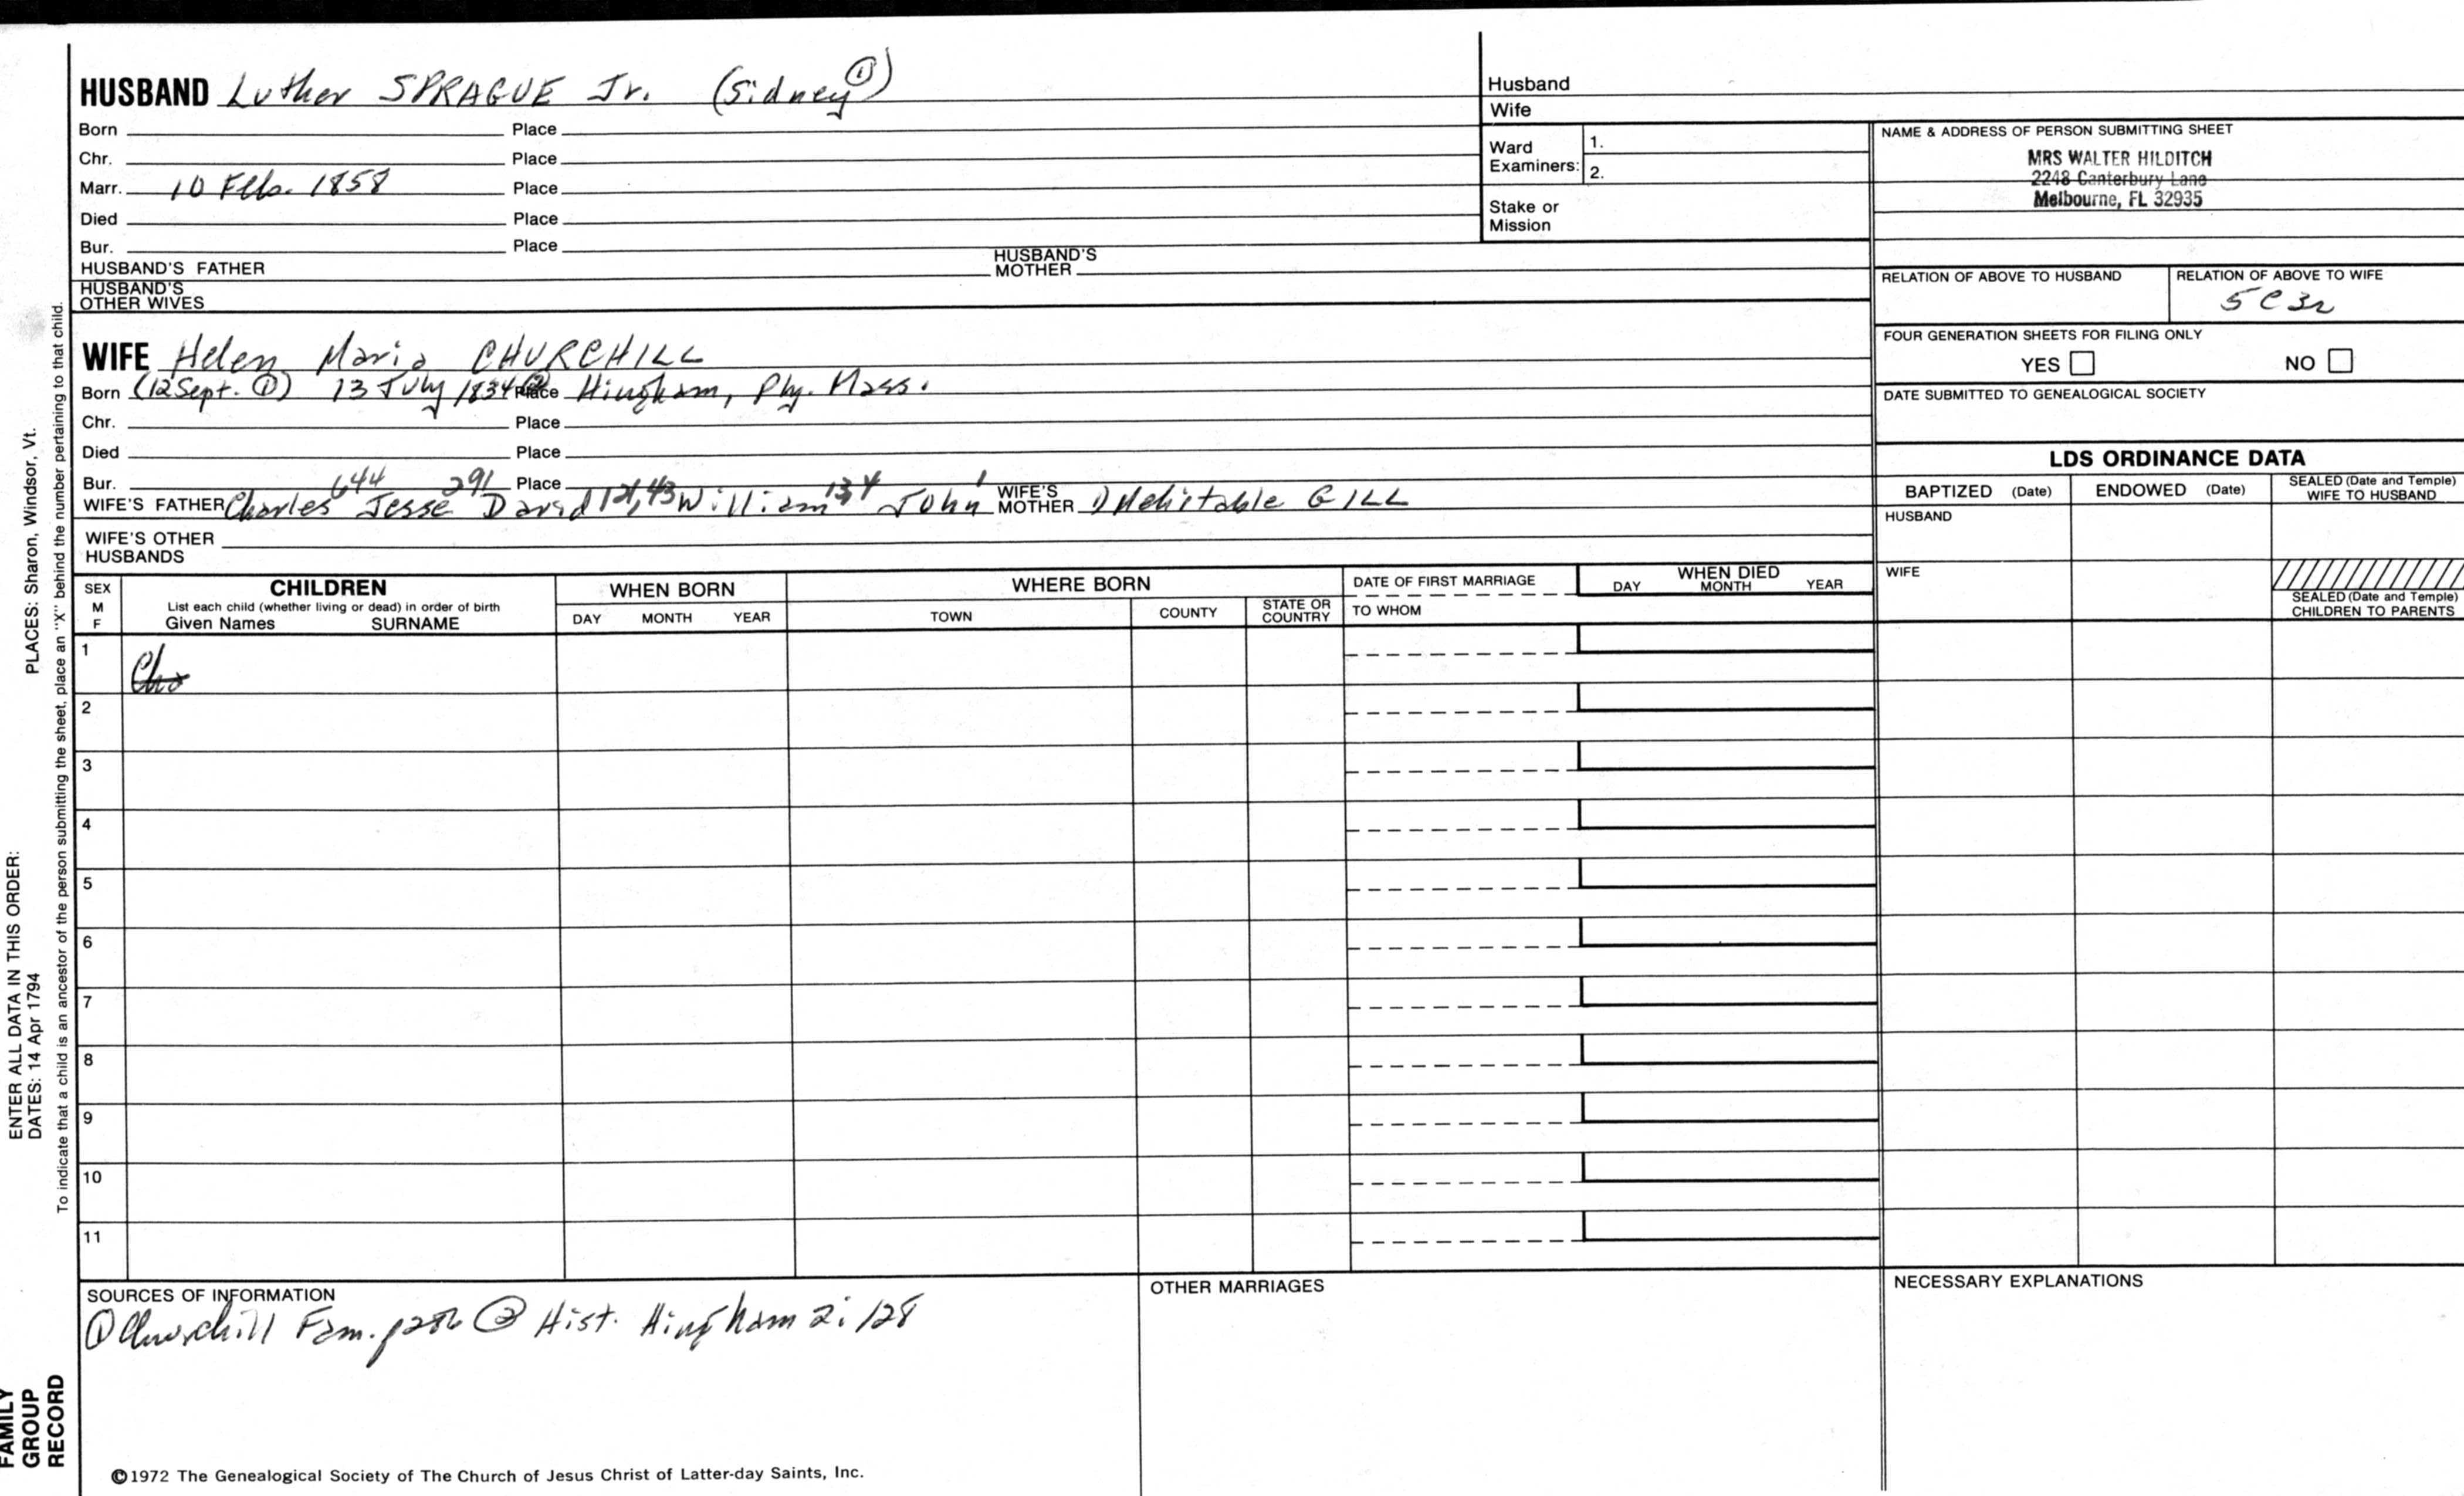 HUSBAND Luther SPRAGUE Jr. (Sidney ①)
Born Place
Chr. Place
Marr. 10 Feb. 1858 Place
Died Place
Bur. Place
HUSBAND'S FATHER HUSBAND'S MOTHER
HUSBAND'S OTHER WIVES
WIFE Helen Maria CHURCHILL
Born (12 Sept. ①) 13 July 1834 ② Place Hingham, Ply. Mass.
Chr. Place
Died Place
Bur. Place
WIFE'S FATHER Charles 644 Jesse 291 David 121,43 William 13,4 John 1 WIFE'S MOTHER Mehitable GILL
WIFE'S OTHER HUSBANDS
Husband
Wife
Ward Examiners: 1.
2.
Stake or Mission
NAME & ADDRESS OF PERSON SUBMITTING SHEET
MRS WALTER HILDITCH
2248 Canterbury Lane
Melbourne, FL 32935
RELATION OF ABOVE TO HUSBAND RELATION OF ABOVE TO WIFE
5C3r
FOUR GENERATION SHEETS FOR FILING ONLY
YES NO
DATE SUBMITTED TO GENEALOGICAL SOCIETY
LDS ORDINANCE DATA
BAPTIZED (Date) ENDOWED (Date) SEALED (Date and Temple) WIFE TO HUSBAND
HUSBAND
WIFE
SEALED (Date and Temple) CHILDREN TO PARENTS
SEX M F
CHILDREN
List each child (whether living or dead) in order of birth
Given Names SURNAME
WHEN BORN
DAY MONTH YEAR
WHERE BORN
TOWN COUNTY STATE OR COUNTRY
DATE OF FIRST MARRIAGE
TO WHOM
WHEN DIED
DAY MONTH YEAR
1
2
3
4
5
6
7
8
9
10
11
SOURCES OF INFORMATION
① Churchill Fam. ② Hist. Hingham 2:128
OTHER MARRIAGES
NECESSARY EXPLANATIONS
©1972 The Genealogical Society of The Church of Jesus Christ of Latter-day Saints, Inc.
FAMILY GROUP RECORD
ENTER ALL DATA IN THIS ORDER:
DATES: 14 Apr 1794
PLACES: Sharon, Windsor, Vt.
To indicate that a child is an ancestor of the person submitting the sheet, place an "X" behind the number pertaining to that child.